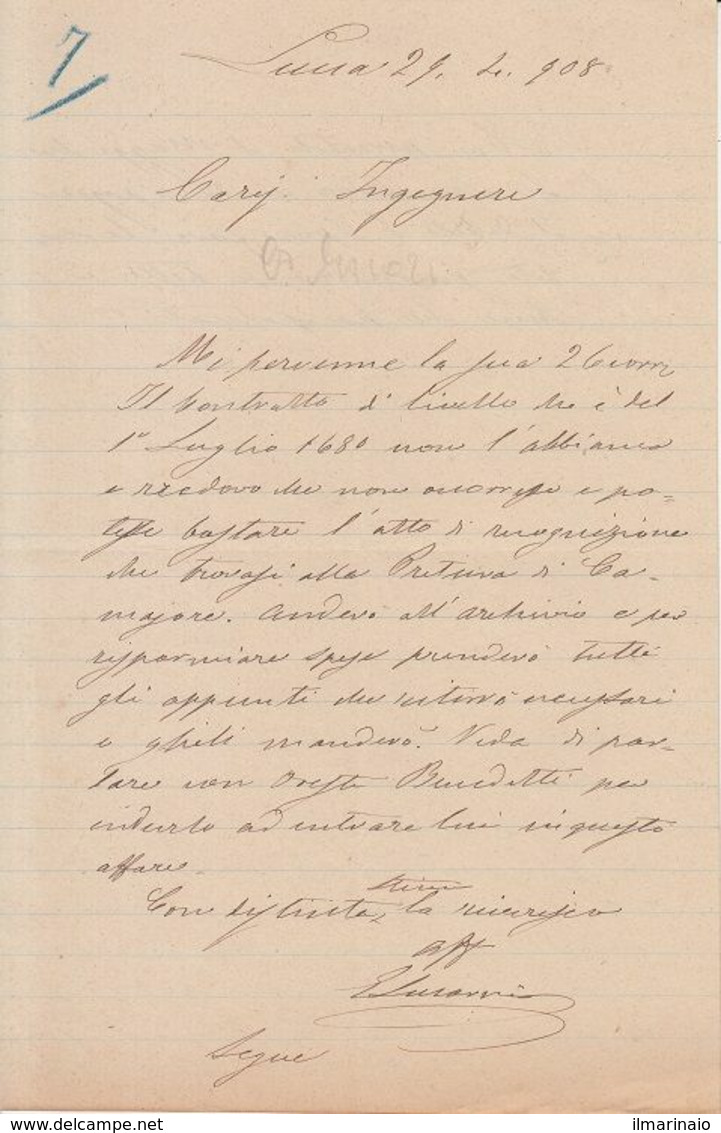 7
Lucca 29. 4. 908
Cariss. Ingegnere
Mi pervenne la sua 26 corr.
Il contratto di livello che è del
1º Luglio 1680 non l'abbiamo
e credevo che non occorresse e po-
tesse bastare l'atto di ricognizione
che trovasi alla Pretura di Ca-
majore. Anderò all'archivio e per
risparmiare spese prenderò tutti
gli appunti che riterrò necessari
e glieli manderò. Veda di par-
lare con Oreste Benedetti per
indurlo ad entrare lui in questo
affare.
Con distinta stima la riverisco
aff
Segue
delcampe.net
ilmarinaio